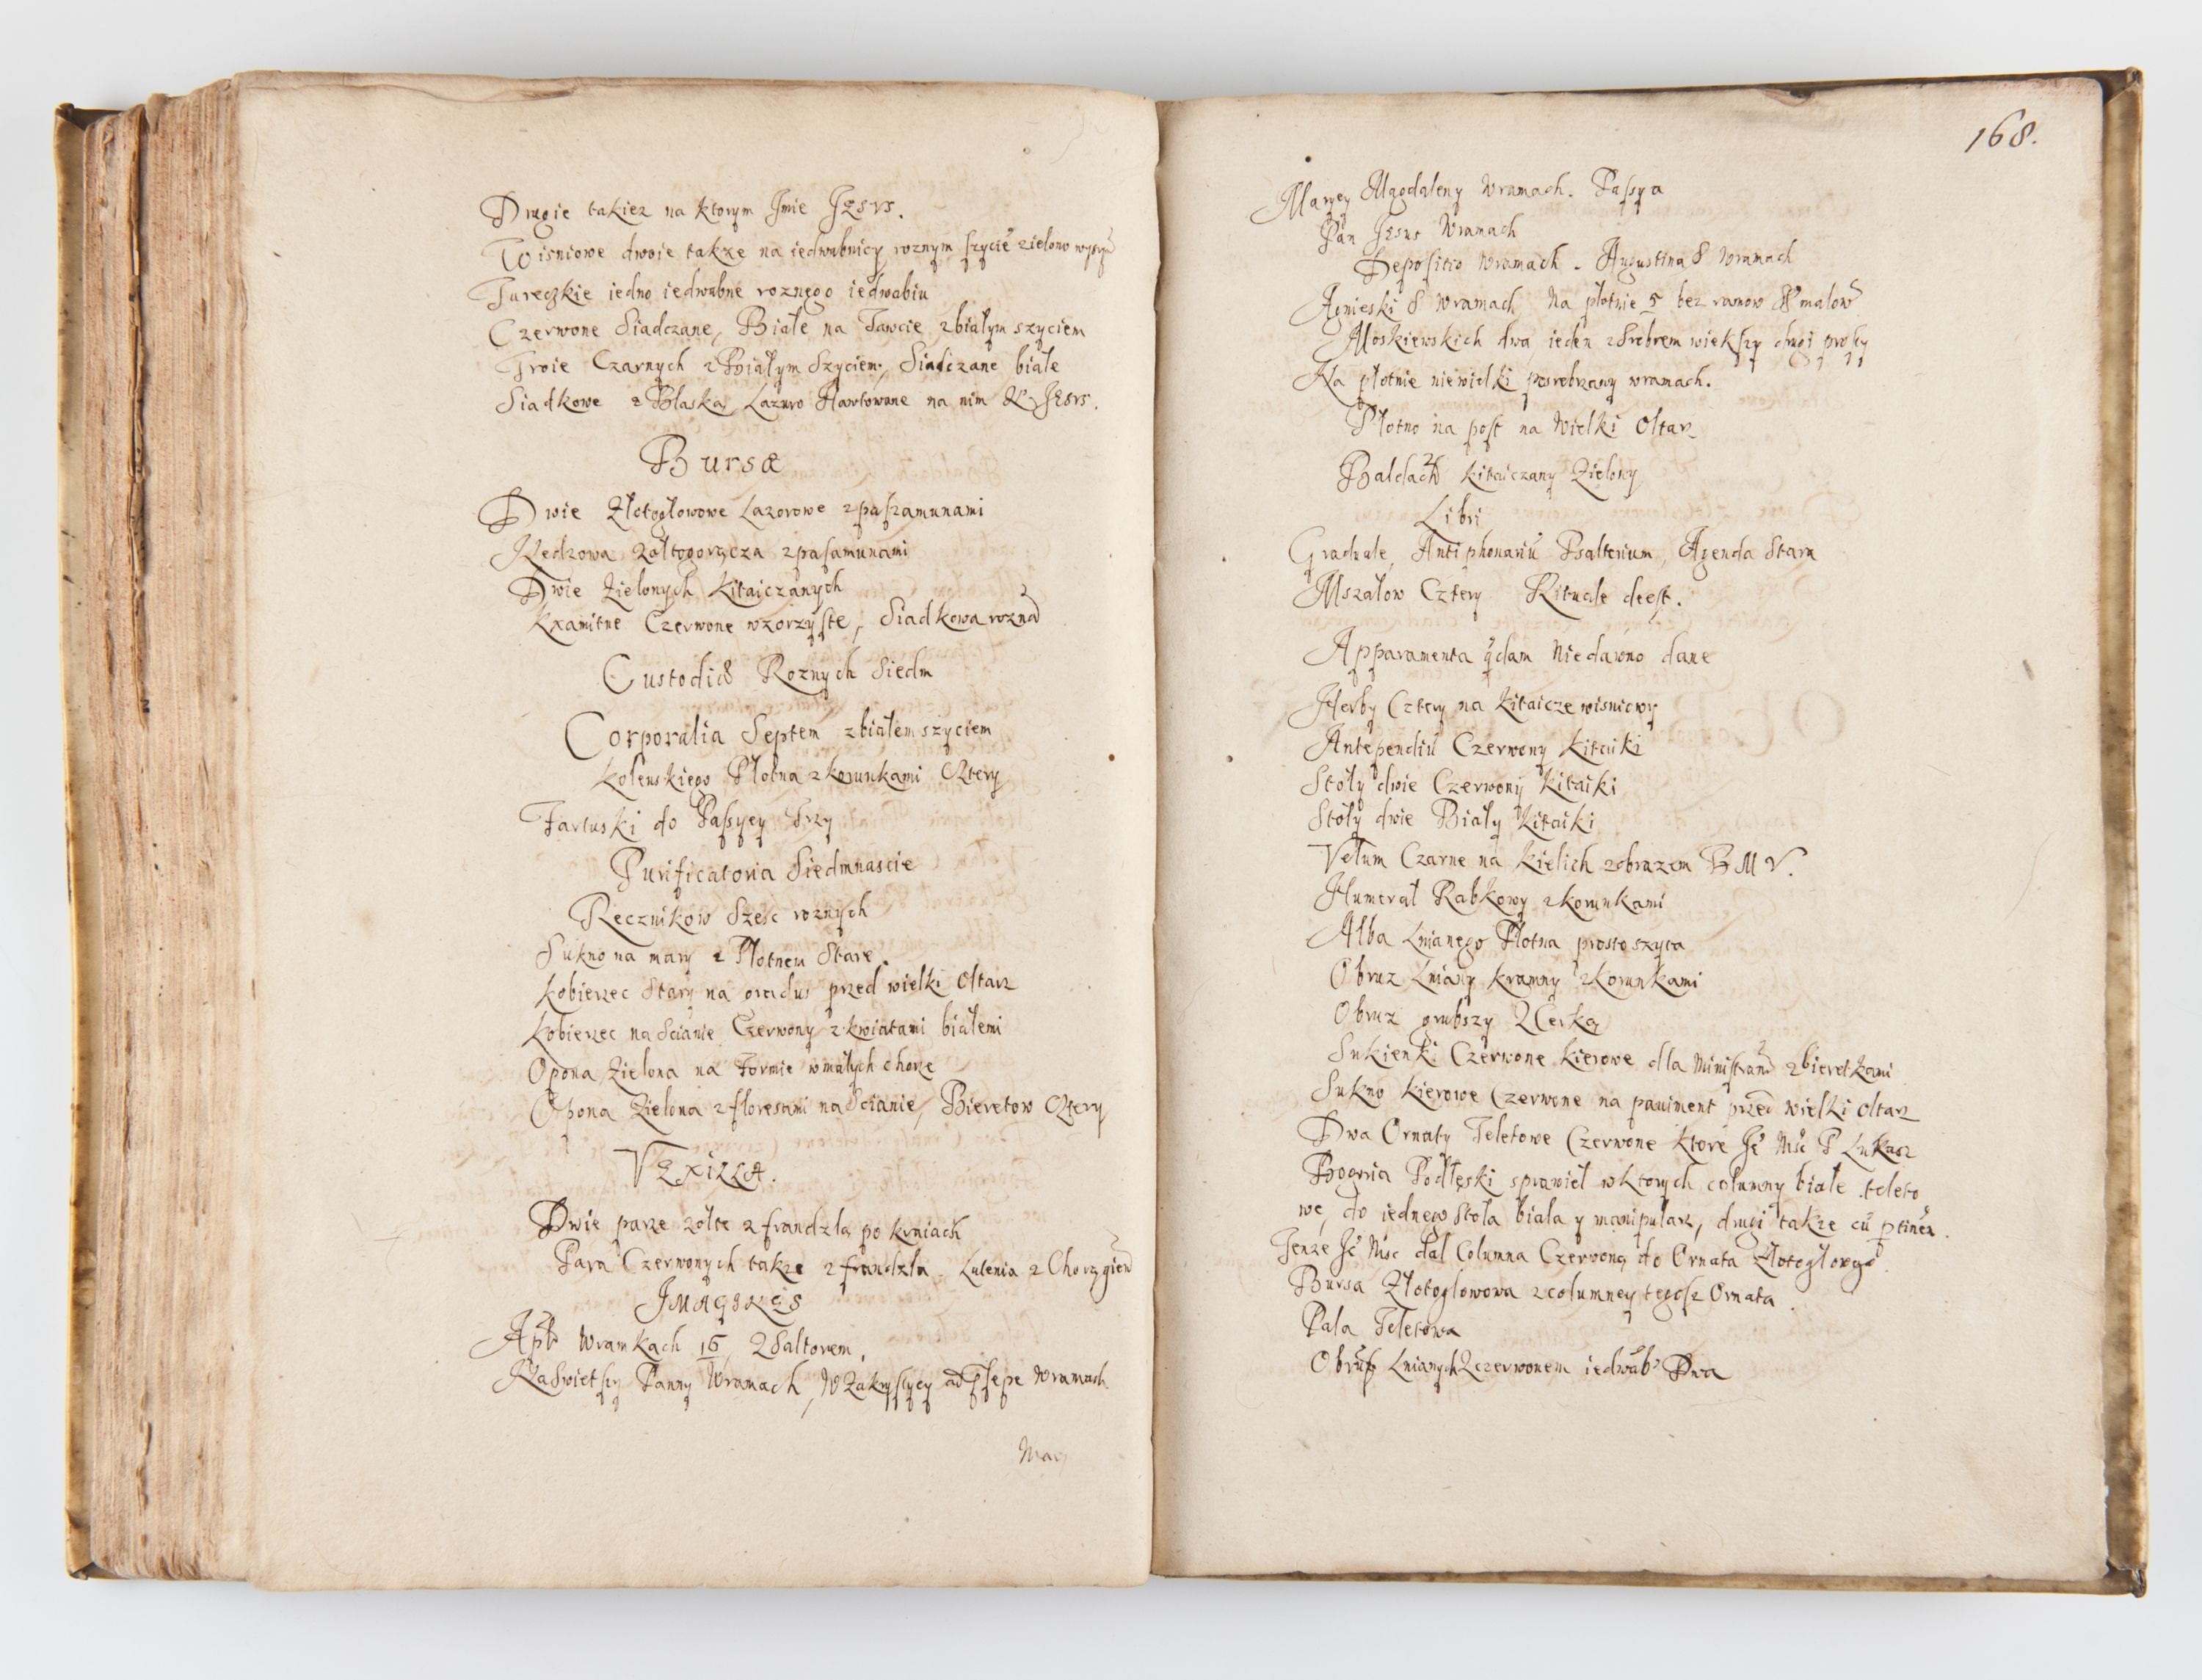 Drugie takiez na ktorym Jmie JESVS.
Wisniowe dwoie takze na iedwabnicy roznym szyciē zielono
Tureczkie iedno iedwabne roznego iedwabiu
Czerwone Siadczane, Białe na Tawcie zbiałym szyciem
Troie Czarnych z Białym Szyciem, Siadczane białe
Siadkowe z Blaską Lazuro Hawtowane na nim JESVS.
Bursæ
Dwie Złotogłowowe Lazorowe z paszamunami
zpasamunami
Dwie Zielonych Kitaiczanych
Kxamitne Czerwone wzorzyste, Siadkowa
Custodiæ Roznych Siedm
Corporalia Septem zbiałem szyciem
Kolenskiego Płotna zkorunkami Cztery
Fartuski do Passyey Trzy
Purificatoria Siedmnascie
Recznikow Szesc roznych
Sukno na mary z Płotnem Stare.
Kobierzec Stary na gradus przed wielki Ołtarz
Kobierzec na Scianie Czerwony z kwiatami białemi
Opona Zielona na Formie wmałych chorze
Opona Zielona z floresami na Scianie, Bieretow Cztery
VEXILLA.
Dwie parze zołte z frandzlą po kraiach
Para Czerwonych takze z frandzlą
IMAGINES
wramkach 16 Zsaltorem,
Panny Wramach, W Zakrystyey Wramach
Mary
168.
Maryey Magdaleny Wramach. Passya
Pan Jesus Wramach
Depositio Wramach. Augustina S Wramach
Agnieski S Wramach Na płotnie 5 bez ramow
Moskiewskich dwa ieden zSrebrem wiekszy drugi prosty
Na płotnie niewielki posrebrzany wramach.
Płotno na post na Wielki Ołtarz
Baldach Kitaiczany Zielony
Libri
Graduale, Antiphonariū Psalterium, Agenda Stara
Mszałow Cztery Rituale deest.
Apparamenta q̄dam Niedawno dane
Herby Cztery na Kitaicze wisniowy
Antependiū Czerwony Kitaiki
Stoły dwie Czerwony Kitaiki
Stoły dwie Biały Kitaiki
Velum Czarne na Kielich zobrazem B M V.
Humerał Rabkowy zkorunkami
Alba Lnianego Płotna prosto szyta
Obruz Lniany kramny zkorunkami
Obruz grubszy
Sukienki Czerwone kierowe dla Ministran zbieretkami
Sukno kierowe Czerwone na pauiment przed wielki ołtarz
Dwa Ornaty Teletowe Czerwone ktore Jc Mść P Lukasz
Bogoria Podłęski sprawieł wktorych columny białe teleto
we, do iednego stoła biała y manipularz, drugi takze cū ptinen.
Tenze Jc Msc dał Columna Czerwoną do Ornata Złotogłowego
Bursa Złotoglowowa zcolumney tegosz Ornata
Pala Teletowa
Obrus Lnianych Zczerwonem iedwab Dwa